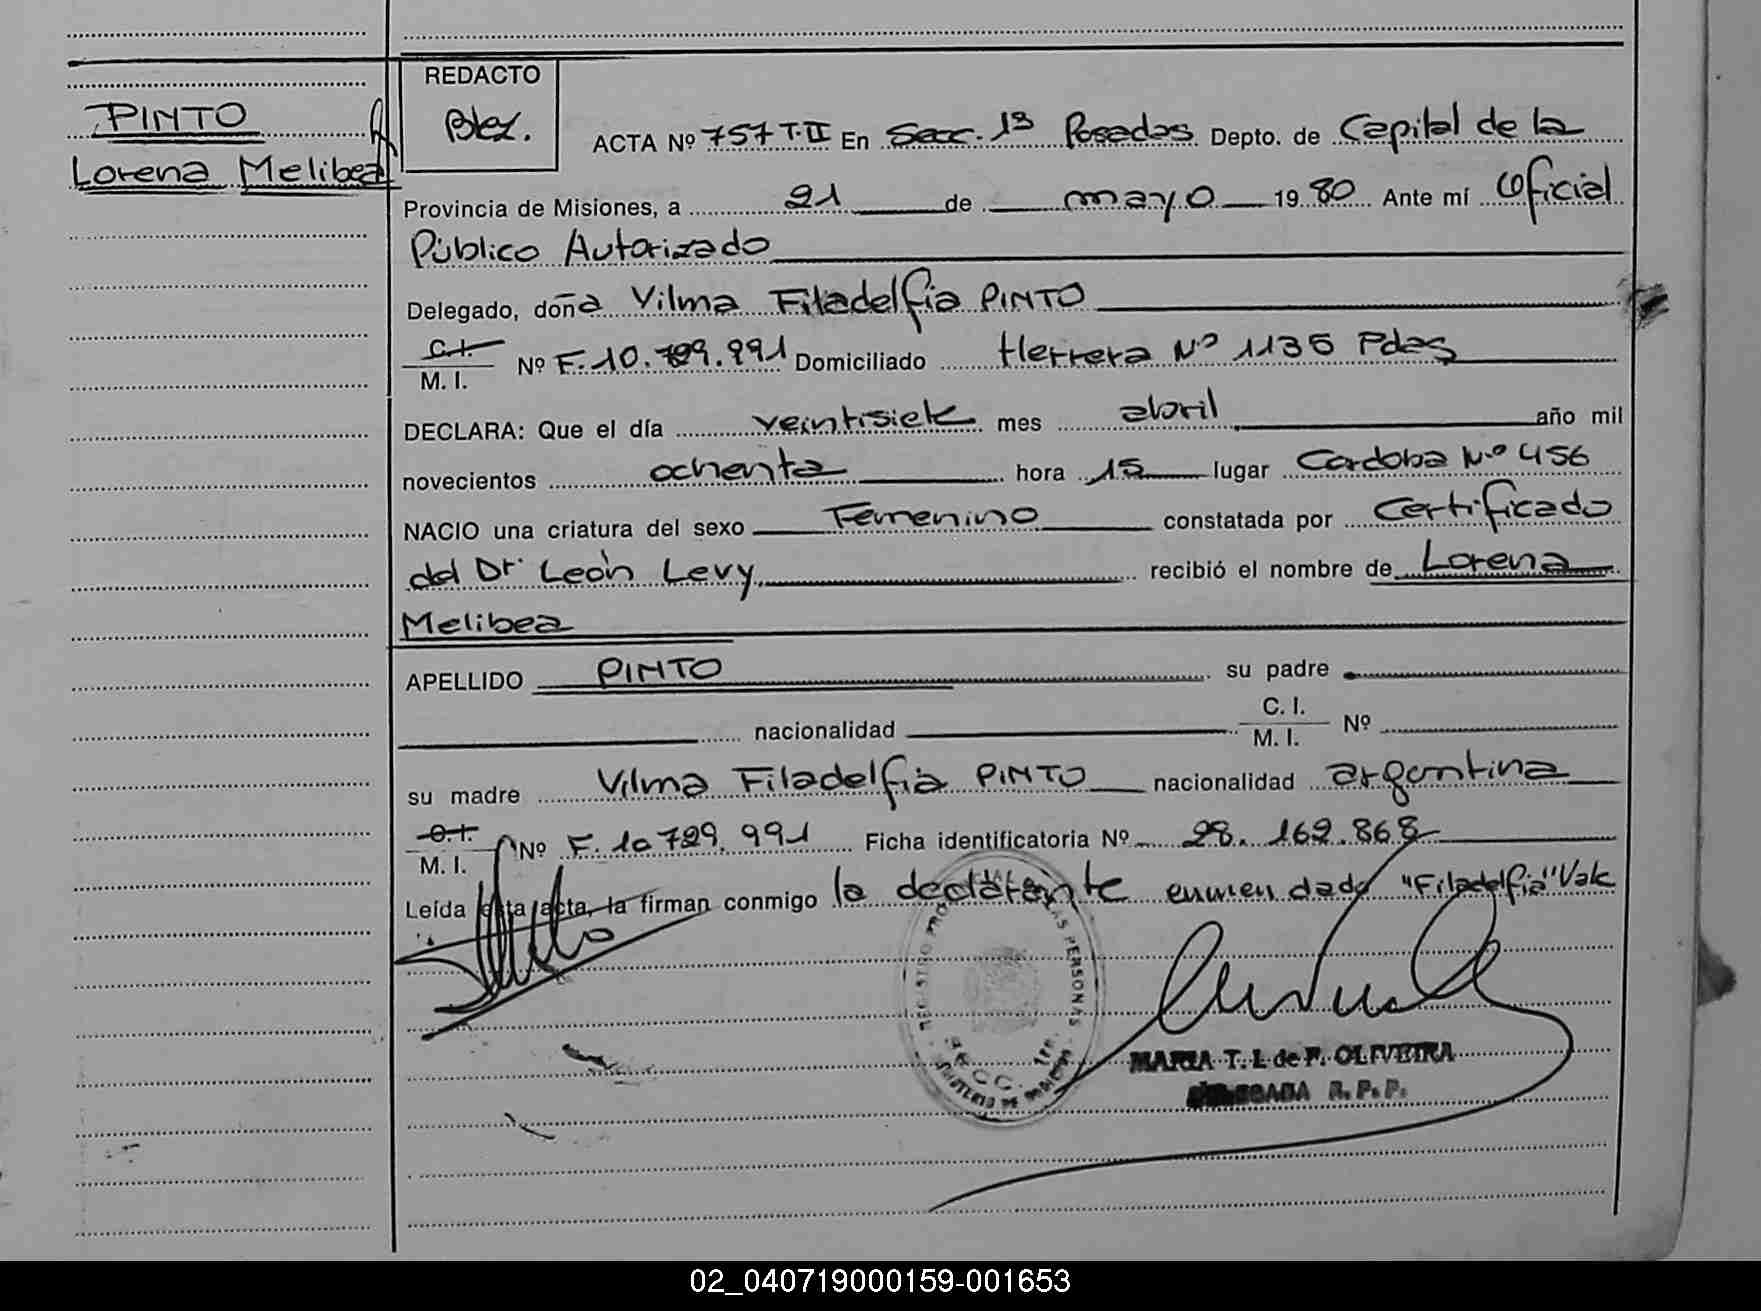 PINTO
Lorena Melibea
REDACTO
Blez.
ACTA Nº 757 T.II En Secc. 1ª Posadas Depto. de Capital de la
Provincia de Misiones, a 21 de mayo 19 80 Ante mí Oficial
Público Autorizado
Delegado, doña Vilma Filadelfia PINTO
C.I.
M. I. Nº F.10.789.991 Domiciliado Herrera Nº 1135 Pdas
DECLARA: Que el día veintisiete mes abril año mil
novecientos ochenta hora 15 lugar Cordoba Nº 456
NACIO una criatura del sexo Femenino constatada por Certificado
del Dr. León Levy recibió el nombre de Lorena
Melibea
APELLIDO PINTO su padre
nacionalidad C. I.
M. I. Nº
su madre Vilma Filadelfia PINTO nacionalidad argentina
C.I.
M. I. Nº F.10 789.991 Ficha identificatoria Nº 28.162.868
Leída esta acta, la firman conmigo la declarante enmendado "Filadelfia" Vale
REGISTRO PERSONAS
SECC. 1ra.
MINISTERIO DE GOBIERNO
MARIA T. I. de F. OLIVEIRA
DELEGADA R. P. P.
02_040719000159-001653